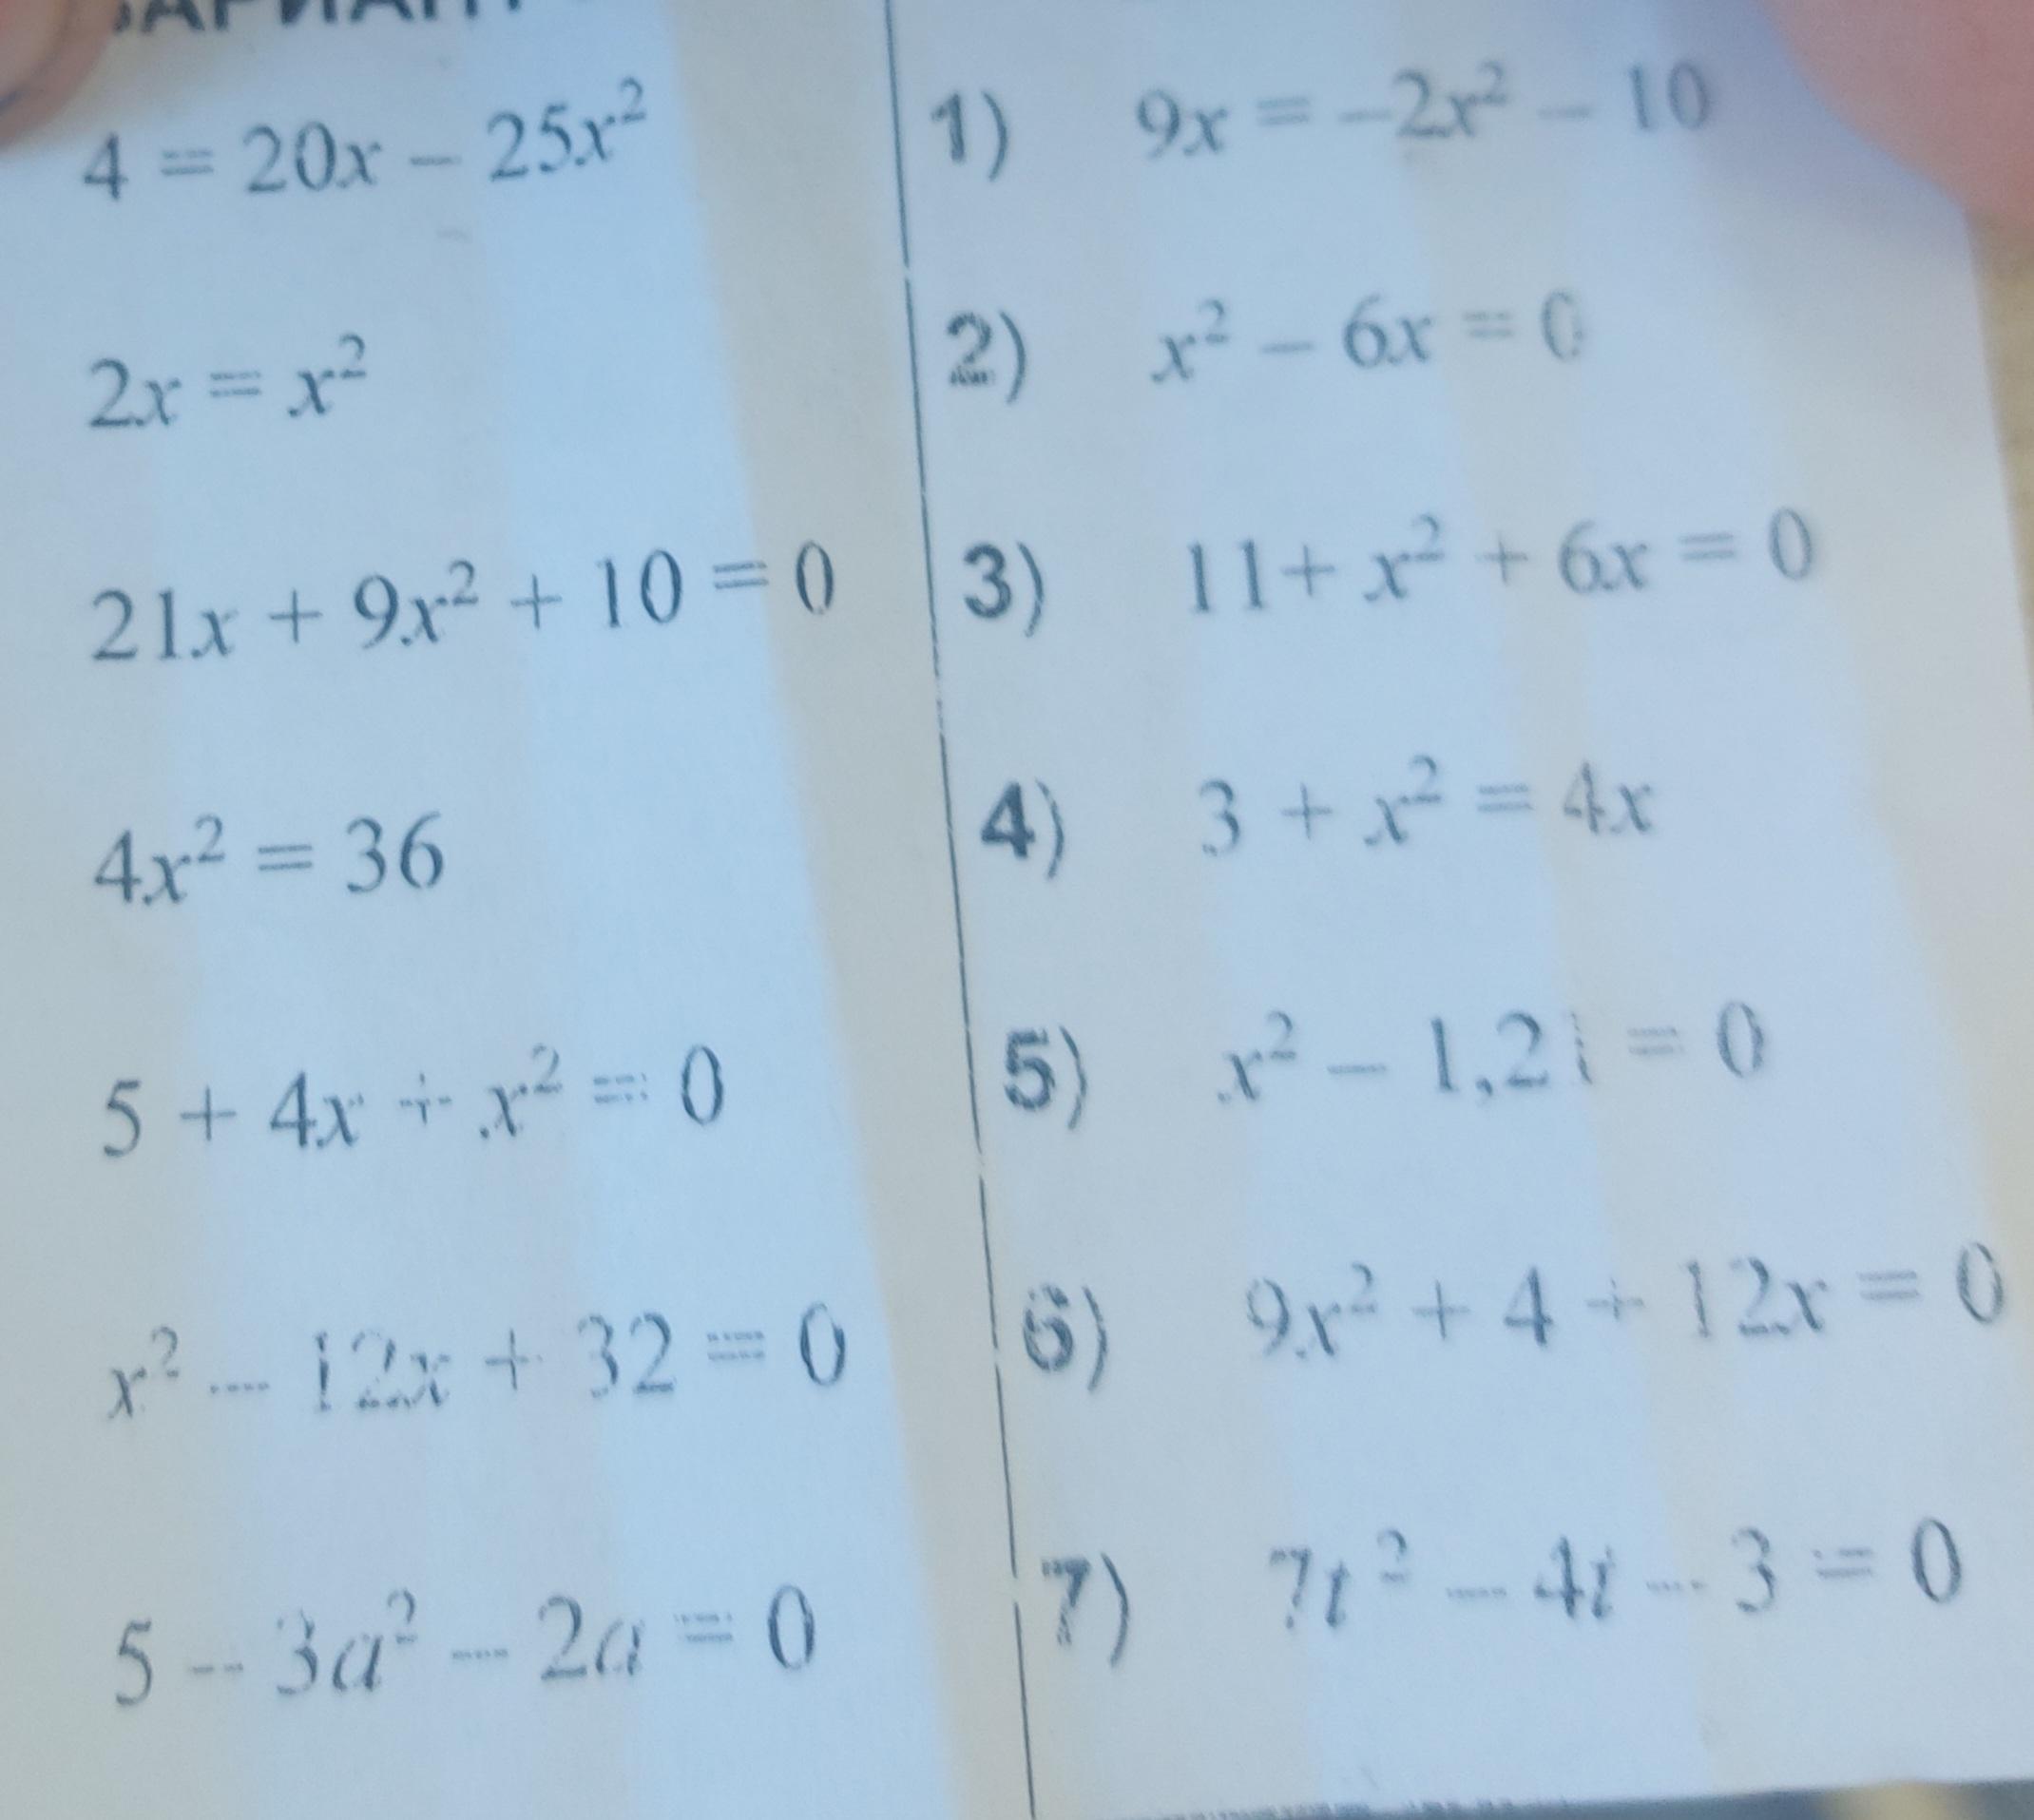 4 = 20x − 25x²
2x = x²
21x + 9x² + 10 = 0
4x² = 36
5 + 4x + x² = 0
x² − 12x + 32 = 0
5 − 3a² − 2a = 0
1) 9x = −2x² − 10
2) x² − 6x = 0
3) 11 + x² + 6x = 0
4) 3 + x² = 4x
5) x² − 1,21 = 0
6) 9x² + 4 + 12x = 0
7) 7t² − 4t − 3 = 0